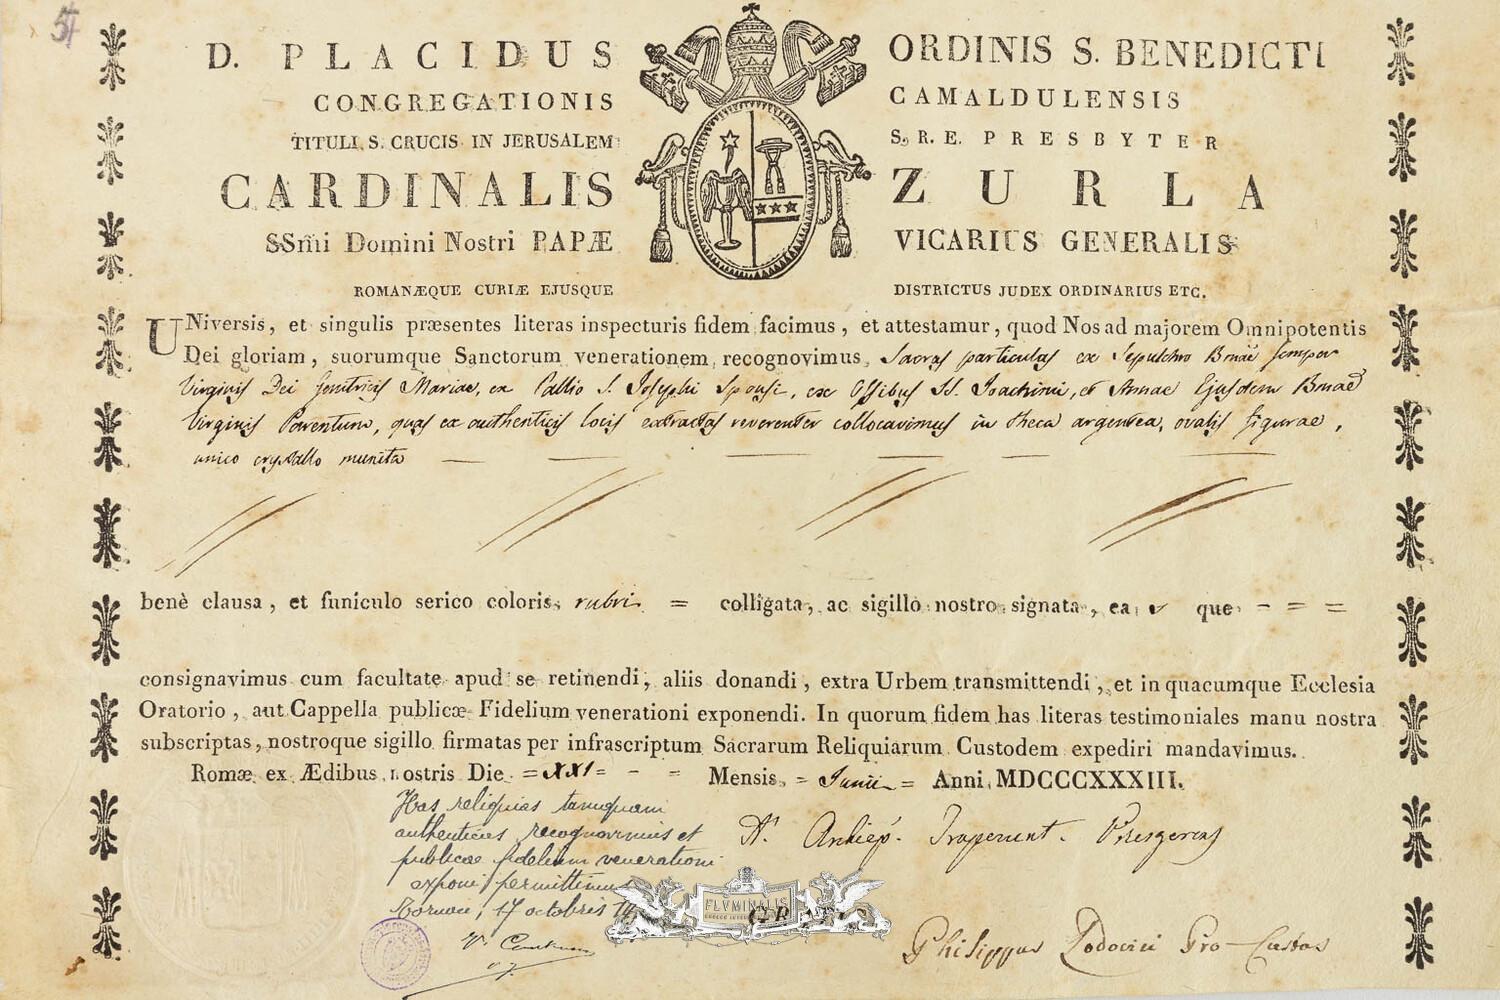 54
D. PLACIDUS ORDINIS S. BENEDICTI
CONGREGATIONIS CAMALDULENSIS
TITULI S. CRUCIS IN JERUSALEM S. R. E. PRESBYTER
CARDINALIS ZURLA
SSm̃i Domini Nostri PAPÆ VICARIUS GENERALIS
ROMANÆQUE CURIÆ EJUSQUE DISTRICTUS JUDEX ORDINARIUS ETC.
UNiversis, et singulis præsentes literas inspecturis fidem facimus, et attestamur, quod Nos ad majorem Omnipotentis
Dei gloriam, suorumque Sanctorum venerationem recognovimus Sacras particulas ex Sepulchro Bmae semper
Virginis Dei Genitricis Mariae, ex Pallio S. Josephi Sponsi, ex Ossibus SS. Joachimi, et Annae Ejusdem Bmae
Virginis Parentum, quas ex authenticis locis extractas reverenter collocavimus in theca argentea, ovalis figurae,
unico crystallo munita
benè clausa, et funiculo serico coloris rubri = colligata, ac sigillo nostro signata, ea que - = =
consignavimus cum facultate apud se retinendi, aliis donandi, extra Urbem transmittendi, et in quacumque Ecclesia
Oratorio, aut Cappella publicæ Fidelium venerationi exponendi. In quorum fidem has literas testimoniales manu nostra
subscriptas, nostroque sigillo firmatas per infrascriptum Sacrarum Reliquiarum Custodem expediri mandavimus.
Romæ ex Ædibus nostris Die = XXI = - = Mensis = Junii = Anni MDCCCXXXIII.
Has reliquias tamquam
authenticas recognovimus et
publicae fidelium venerationi
exponi permittimus
17 octobris
A. Archiep. Trapezunt. Vicesgerens
FLVMINALIS
GRATIS
Philippus Lodovici Pro-Custos